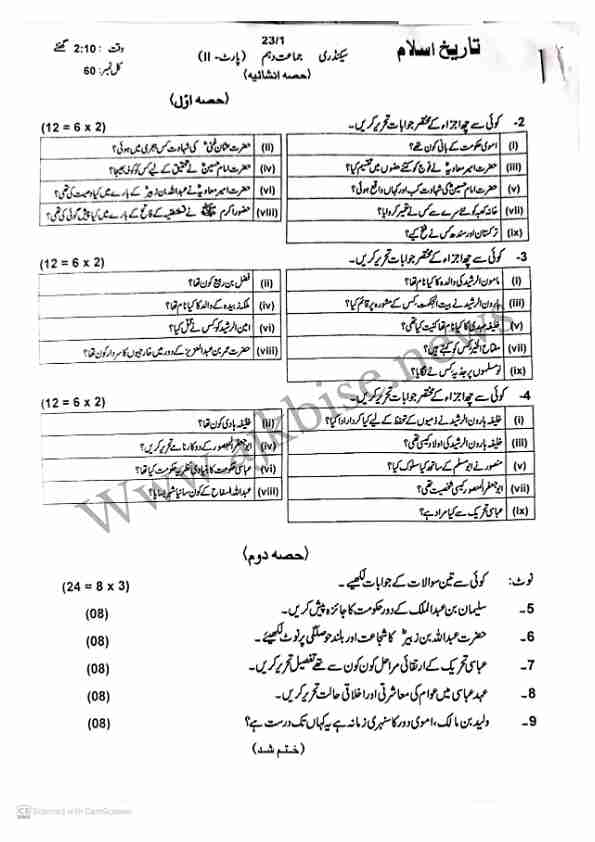 23/1
تاریخ اسلام
سیکنڈری جماعت دہم (پارٹ - II)
وقت : 2:10 گھنٹے
(حصہ انشائیہ)
کل نمبر: 60
(حصہ اوّل)
2- کوئی سے چھ اجزاء کے مختصر جوابات تحریر کریں۔ (12 = 6 x 2)
(i) اموی حکومت کے بانی کون تھے؟
(ii) حضرت عثمان غنیؓ کی شہادت کس ہجری میں ہوئی؟
(iii) حضرت امیر معاویہؓ نے فوج کو کتنے حصوں میں تقسیم کیا؟
(iv) حضرت امام حسینؓ نے تحقیق کے لیے کس کو کوفہ بھیجا؟
(v) حضرت امام حسینؓ کی شہادت کب اور کہاں واقع ہوئی؟
(vi) حضرت امیر معاویہؓ نے عبداللہ بن زبیرؓ کے بارے میں کیا وصیت کی تھی؟
(vii) خانہ کعبہ کو نئے سرے سے کس نے تعمیر کروایا؟
(viii) حضور اکرم ﷺ نے قسطنطنیہ کے فاتح کے بارے میں کیا پیش گوئی کی تھی؟
(ix) ترکستان اور سندھ کس نے فتح کیے؟
3- کوئی سے چھ اجزاء کے مختصر جوابات تحریر کریں۔ (12 = 6 x 2)
(i) مامون الرشید کی والدہ کا کیا نام تھا؟
(ii) فضل بن ربیع کون تھا؟
(iii) ہارون الرشید نے بیت الحکمت کس کے مشورہ پر قائم کیا؟
(iv) ملکہ زبیدہ کے والد کا کیا نام تھا؟
(v) خلیفہ مہدی کا کیا نام تھا کنیت کیا تھی؟
(vi) امین الرشید کو کس نے قتل کیا؟
(vii) مفتاح الخیر کس کو کہتے ہیں؟
(viii) حضرت عمر بن عبدالعزیز کے دور میں خارجیوں کا سردار کون تھا؟
(ix) نومسلموں پر جذیہ کس نے لگایا؟
4- کوئی سے چھ اجزاء کے مختصر جوابات تحریر کریں۔ (12 = 6 x 2)
(i) خلیفہ ہارون الرشید نے ذمیوں کے تحفظ کے لیے کیا کردار ادا کیا؟
(ii) خلیفہ ہادی کون تھا؟
(iii) خلیفہ ہارون الرشید کی اولاد کیسی تھی؟
(iv) ابو جعفر المنصور کے دو کارنامے تحریر کریں؟
(v) منصور نے ابو مسلم کے ساتھ کیا سلوک کیا؟
(vi) عباسی حکومت کا بنیادی نظریہ حکومت کیا تھا؟
(vii) ابو جعفر المنصور کیسی شخصیت تھی؟
(viii) عبداللہ السفاح کے کون سا نیا شہر بسایا؟
(ix) عباسی تحریک سے کیا مراد ہے؟
(حصہ دوم)
نوٹ: کوئی سے تین سوالات کے جوابات لکھیے۔ (24 = 8 x 3)
5- سلیمان بن عبدالملک کے دور حکومت کا جائزہ پیش کریں۔ (08)
6- حضرت عبداللہ بن زبیرؓ کا شجاعت اور بلند حوصلگی پر نوٹ لکھیئے۔ (08)
7- عباسی تحریک کے ارتقائی مراحل کون کون سے تھے تفصیل تحریر کریں۔ (08)
8- عہد عباسی میں عوام کی معاشرتی اور اخلاقی حالت تحریر کریں۔ (08)
9- ولید بن مالک، اموی دور کا سنہری زمانہ ہے یہ کہاں تک درست ہے؟ (08)
(ختم شد)
www.ajkbise.news
CS Scanned with CamScanner